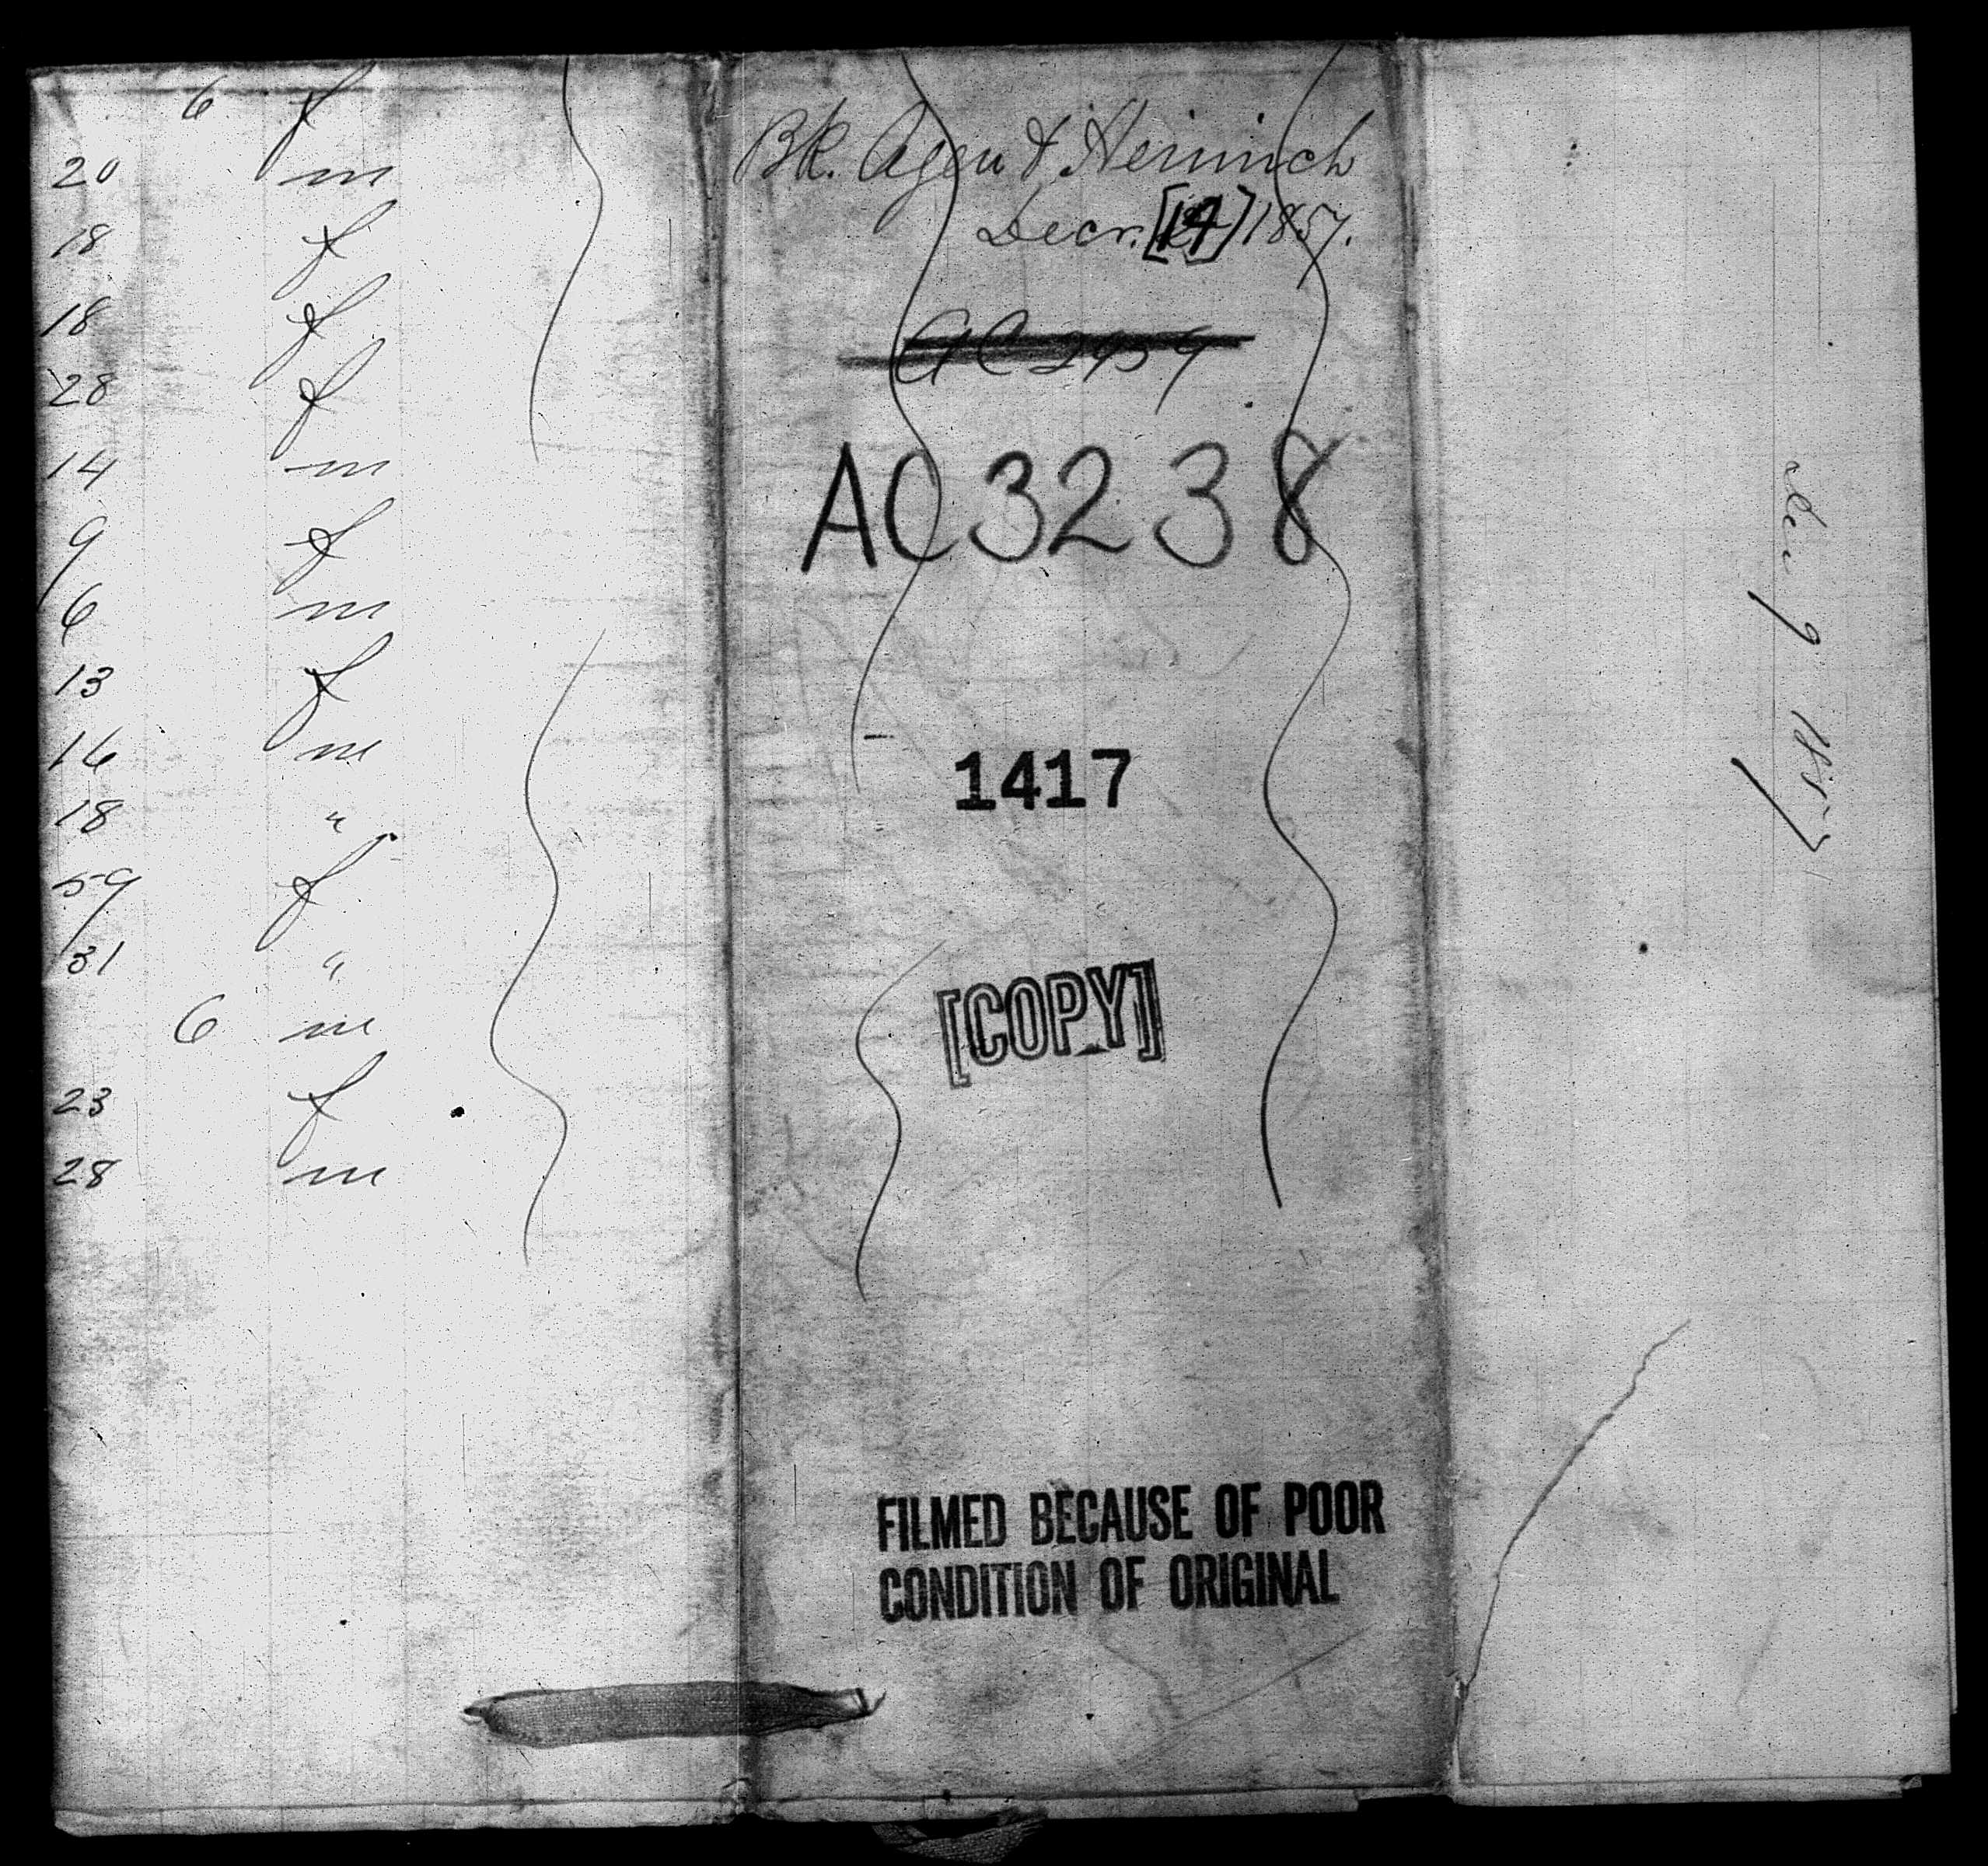 6 f
20 m
18 f
18 f
28 f
14 m
9 f
6 m
13 f
16 m
18 "
59 f
31 "
6 m
23 f
28 m
Bk. Agen & Heinrich
Decr. [14] 1857.
AC 2959
AC 3238
1417
[COPY]
FILMED BECAUSE OF POOR
CONDITION OF ORIGINAL
9 1857